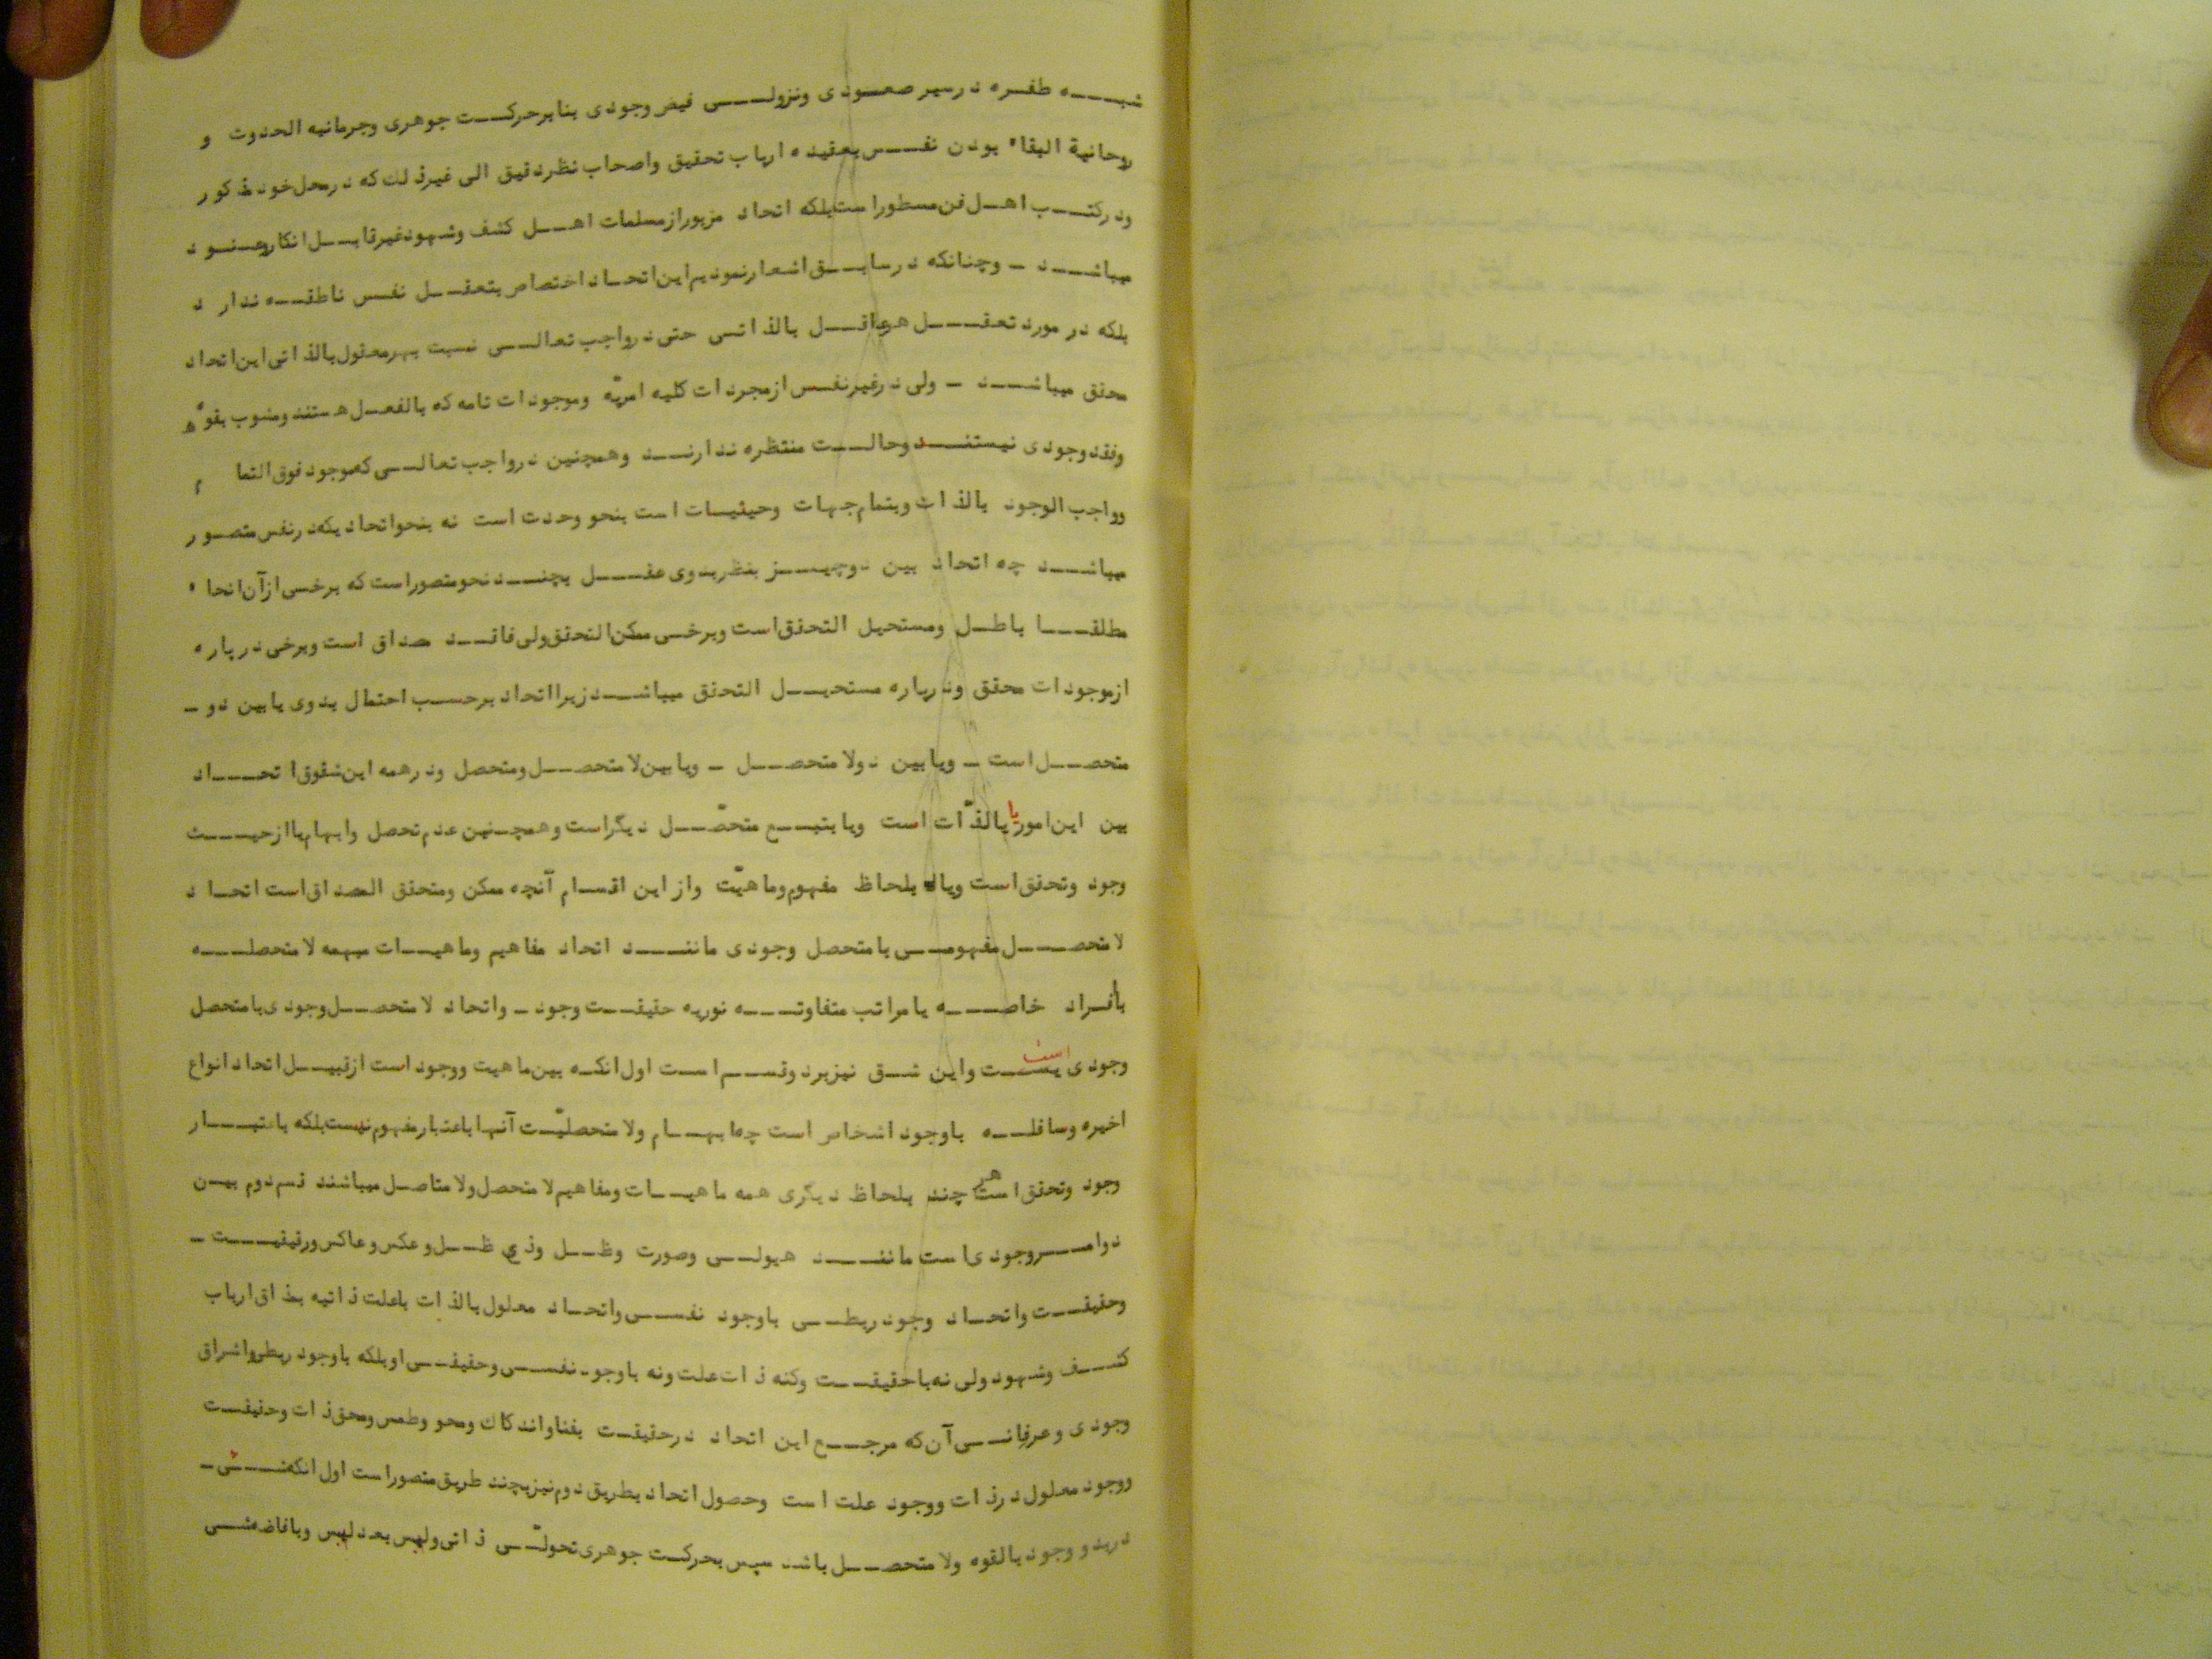 شبه طفره در سیر صعودی ونزولی فیض وجودی بنابر حرکت جوهری وجرمانیه الحدوث و
روحانیة البقاء بودن نفس بعقیده ارباب تحقیق واصحاب نظر دقیق الی غیر ذلك که در محل خود مذکور
ودر کتب اهل فن مسطور است بلکه اتحاد مزبور از مسلمات اهل کشف وشهود غیر قابل انکار وعنود
میباشد – وچنانکه در سابق اشعار نمودیم این اتحاد اختصاص بتعقل نفس ناطقه ندارد
بلکه در مورد تعقل هر عاقل بالذاتی حتی در واجب تعالی نسبت بهر معقول بالذاتی این اتحاد
محقق میباشد – ولی در غیر نفس از مجردات کلیه امریّه وموجودات تامه که بالفعل هستند ومشوب بقوّه
وفقد وجودی نیستند وحالت منتظره ندارند وهمچنین در واجب تعالی که موجود فوق التمام
وواجب الوجود بالذات وبتمام جهات وحیثیات است بنحو وحدت است نه بنحو اتحادیکه در نفس متصور
میباشد چه اتحاد بین دوچیز بنظر بدوی عقل بچند نحو متصور است که برخی از آن انحاء
مطلقا باطل ومستحیل التحقق است وبرخی ممکن التحقق ولی فاقد مصداق است وبرخی در پاره
از موجودات محقق ودر پاره مستحیل التحقق میباشد زیرا اتحاد برحسب احتمال بدوی یا بین دو –
متحصل است – ویا بین دولا متحصل – ویا بین لا متحصل ومتحصل ودر همه این شقوق اتحاد
بین این امور یا بالذّات است ویا بتبع متحصّل دیگر است وهمچنین عدم تحصل وابهام یا از حیث
وجود وتحقق است ویا بلحاظ مفهوم وماهیّت واز این اقسام آنچه ممکن ومتحقق المصداق است اتحاد
لا متحصل مفهومی با متحصل وجودی مانند اتحاد مفاهیم وماهیات مبهمه لا متحصله
بأفراد خاصه یا مراتب متفاوته نوریه حقیقت وجود – واتحاد لا متحصل وجودی با متحصل
وجودی است واین شق نیز بر دوقسم است اول انکه بین ماهیت ووجود است از قبیل اتحاد انواع
اخیره وسافله باوجود اشخاص است چه ابهام ولا متحصلیّت آنها باعتبار مفهوم نیست بلکه باعتبار
وجود وتحقق است هر چند بلحاظ دیگری همه ماهیات ومفاهیم لا متحصل ولا متاصل میباشند قسم دوم بین
دوامر وجودی است مانند هیولی وصورت وظل وذی ظل وعکس وعاکس ورقیقت –
وحقیقت واتحاد وجود ربطی باوجود نفسی واتحاد معلول بالذات باعلت ذاتیه بمذاق ارباب
کشف وشهود ولی نه با حقیقت وکنه ذات علت ونه باوجود نفسی وحقیقی او بلکه باوجود ربطی واشراق
وجودی وعرفانی آن که مرجع این اتحاد درحقیقت بفنا واندکاك ومحو وطمس ومحق ذات وحقیقت
ووجود معلول در ذات ووجود علت است وحصول اتحاد بطریق دوم نیز بچند طریق متصور است اول انکه شی –
در بدو وجود بالقوه ولا متحصل باشد سپس بحرکت جوهری تحولّی ذاتی ولبس بعد لبس وبافاضه